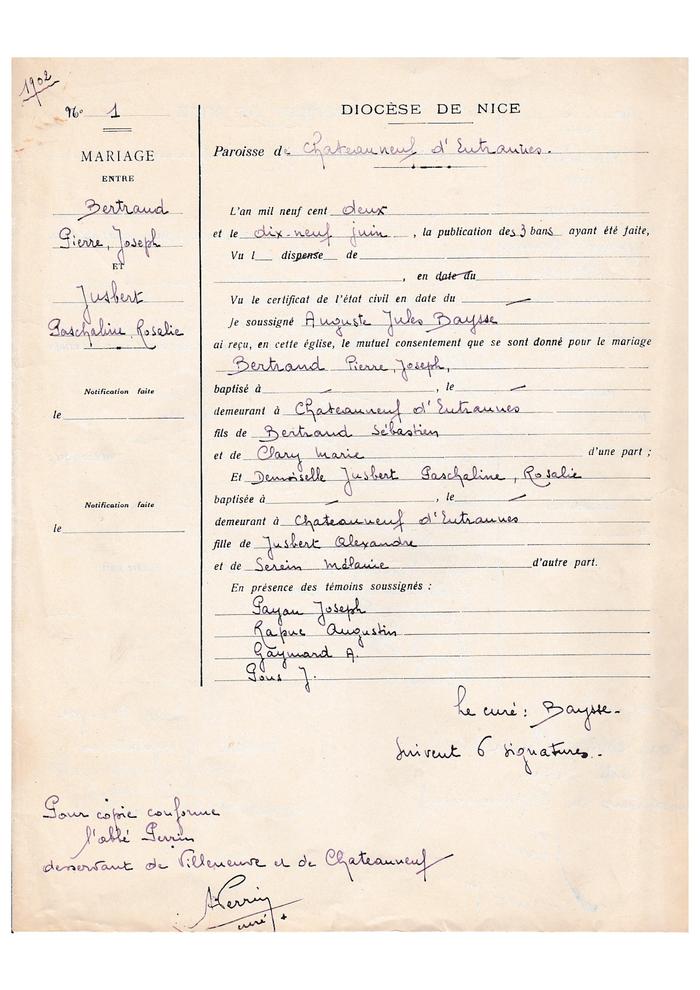 1902
No 1
MARIAGE
ENTRE
Bertrand
Pierre, Joseph
ET
Jusbert
Paschaline, Rosalie
Notification faite
le
Notification faite
le
DIOCÈSE DE NICE
Paroisse de Chateauneuf d'Entraunes.
L'an mil neuf cent deux
et le dix-neuf juin, la publication des 3 bans ayant été faite,
Vu l dispense de
, en date du
Vu le certificat de l'état civil en date du —
Je soussigné Auguste Jules Baysse
ai reçu, en cette église, le mutuel consentement que se sont donné pour le mariage
Bertrand Pierre, Joseph,
baptisé à — , le —
demeurant à Chateauneuf d'Entraunes
fils de Bertrand Sébastien
et de Clary Marie d'une part ;
Et Demoiselle Jusbert Paschaline, Rosalie
baptisée à — , le —
demeurant à Chateauneuf d'Entraunes
fille de Jusbert Alexandre
et de Serein Mélanie d'autre part.
En présence des témoins soussignés :
Payan Joseph
Augustin
Gaymard A.
Pons J.
Le curé : Baysse.
Suivent 6 signatures.
Pour copie conforme
l'abbé Perrin
desservant de Villeneuve et de Chateauneuf
A Perrin
curé +